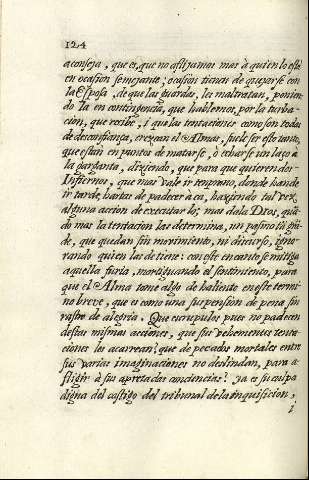 124
aconseja, que es, que no aflijamos mas à quien lo està
en ocasion semejante; ocasion tienen de quejarse con
la Esposa, de que las guardas, les maltratan, ponien-
do la en contingencia, que hablemos, por la turba-
cion, que recibe; i que las tentaciones como son todas
de desconfiança, creyan el Alma, suele ser esto tanto,
que estan en puntos de matarse, ò echarse un laço a
la garganta, diziendo, que para que quieren dos
Infiernos, que mas vale ir temprano, donde han de
ir tarde, hartas de padecer acà, haziendo tal vez
alguna accion de executarlo; mas dala Dios, quã-
do mas la tentacion las determina, un pasmo tã grã-
de, que quedan sin movimiento, ni discurso, igno-
rando quien las detiene: con este encanto se mitiga
aquella furia, mortiguando el sentimiento, para
que el Alma tome algo de haliento en este termi-
no breve, que es como una suspension de pena sin
rastro de alegria. Que escrupulos pues no padecen
destas mismas acciones, que sus vehementes tenta-
ciones les acarrean? que de pecados mortales entre
sus varias imaginaciones no deslindan, para a-
fligir à sus apretadas conciencias? ya es su culpa
digna del castigo del tribunal de la inquisicion,
i